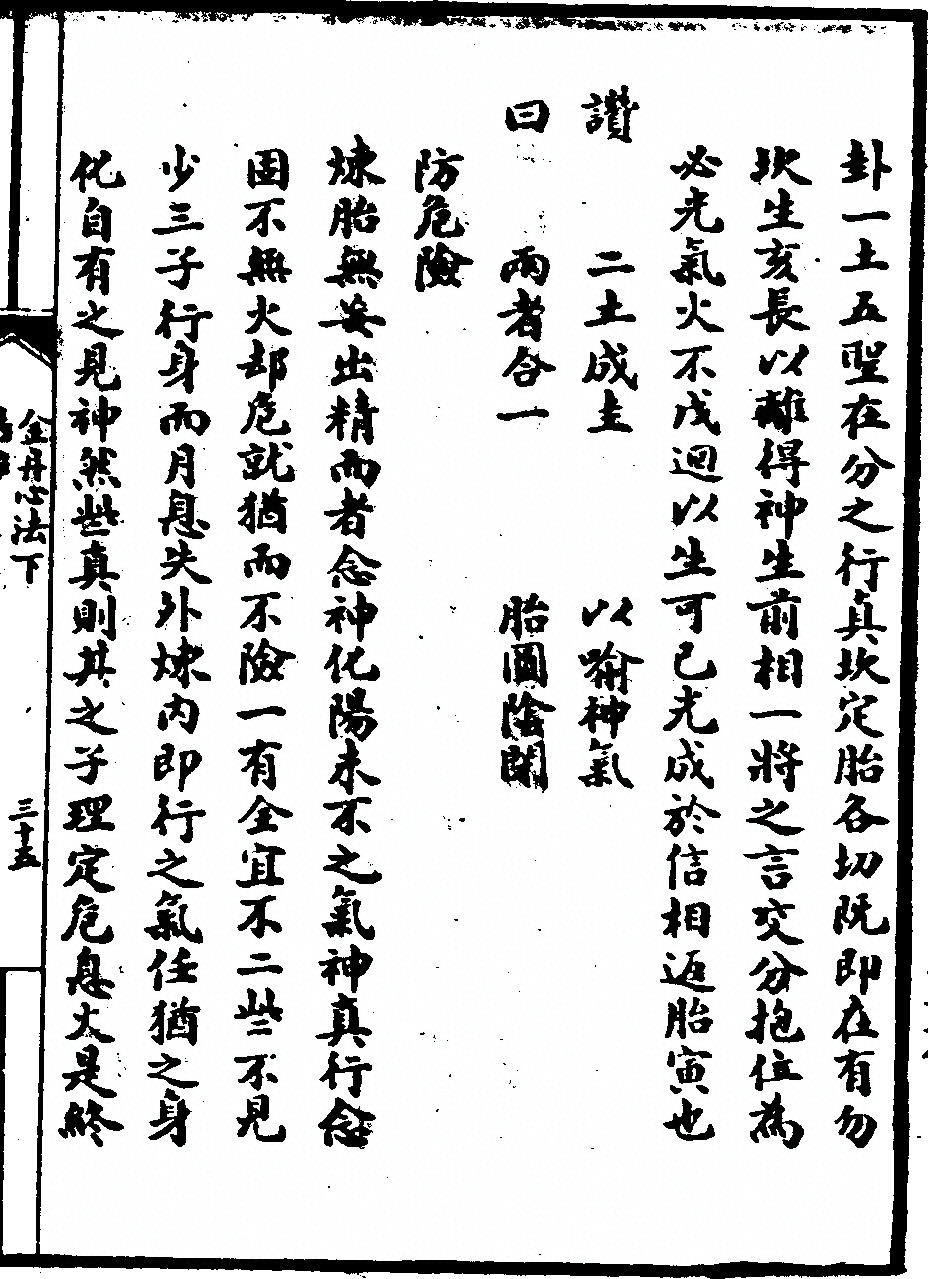 卦一土五聖在分之行真坎定胎各切既即在有勿
坎生亥長以離得神生前相一將之言交分抱位為
必光氣火不戊迴以生可已光成於信相返胎寅也
讚　二土成圭　以喻神氣
曰　兩者合一　胎圓陰闕
防危險
煉胎無妄出精而者念神化陽未不之氣神真行念
固不無火却危就猶而不險一有全宜不二些不見
少三子行身而月息失外煉內即行之氣任猶之身
化自有之見神然些真則其之子理定危息火是終
金丹心法下
三十五